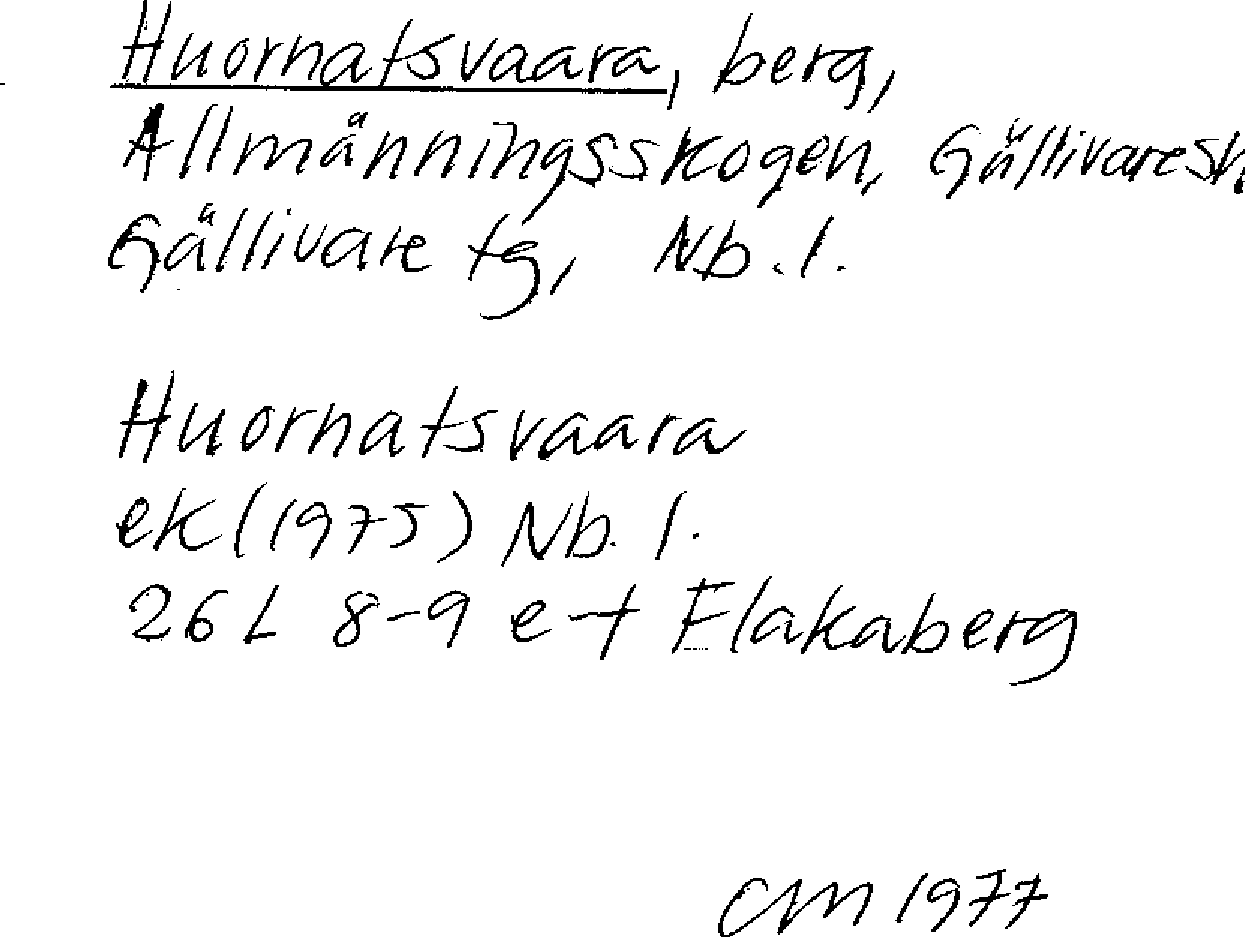 Huornatsvaara, berg,
Allmänningsskogen, Gällivare
Gällivare tg, Nb. l.
Huornatsvaara
ek (1975) Nb. l.
26 L 8-9 e-f Flakaberg
CM 1977